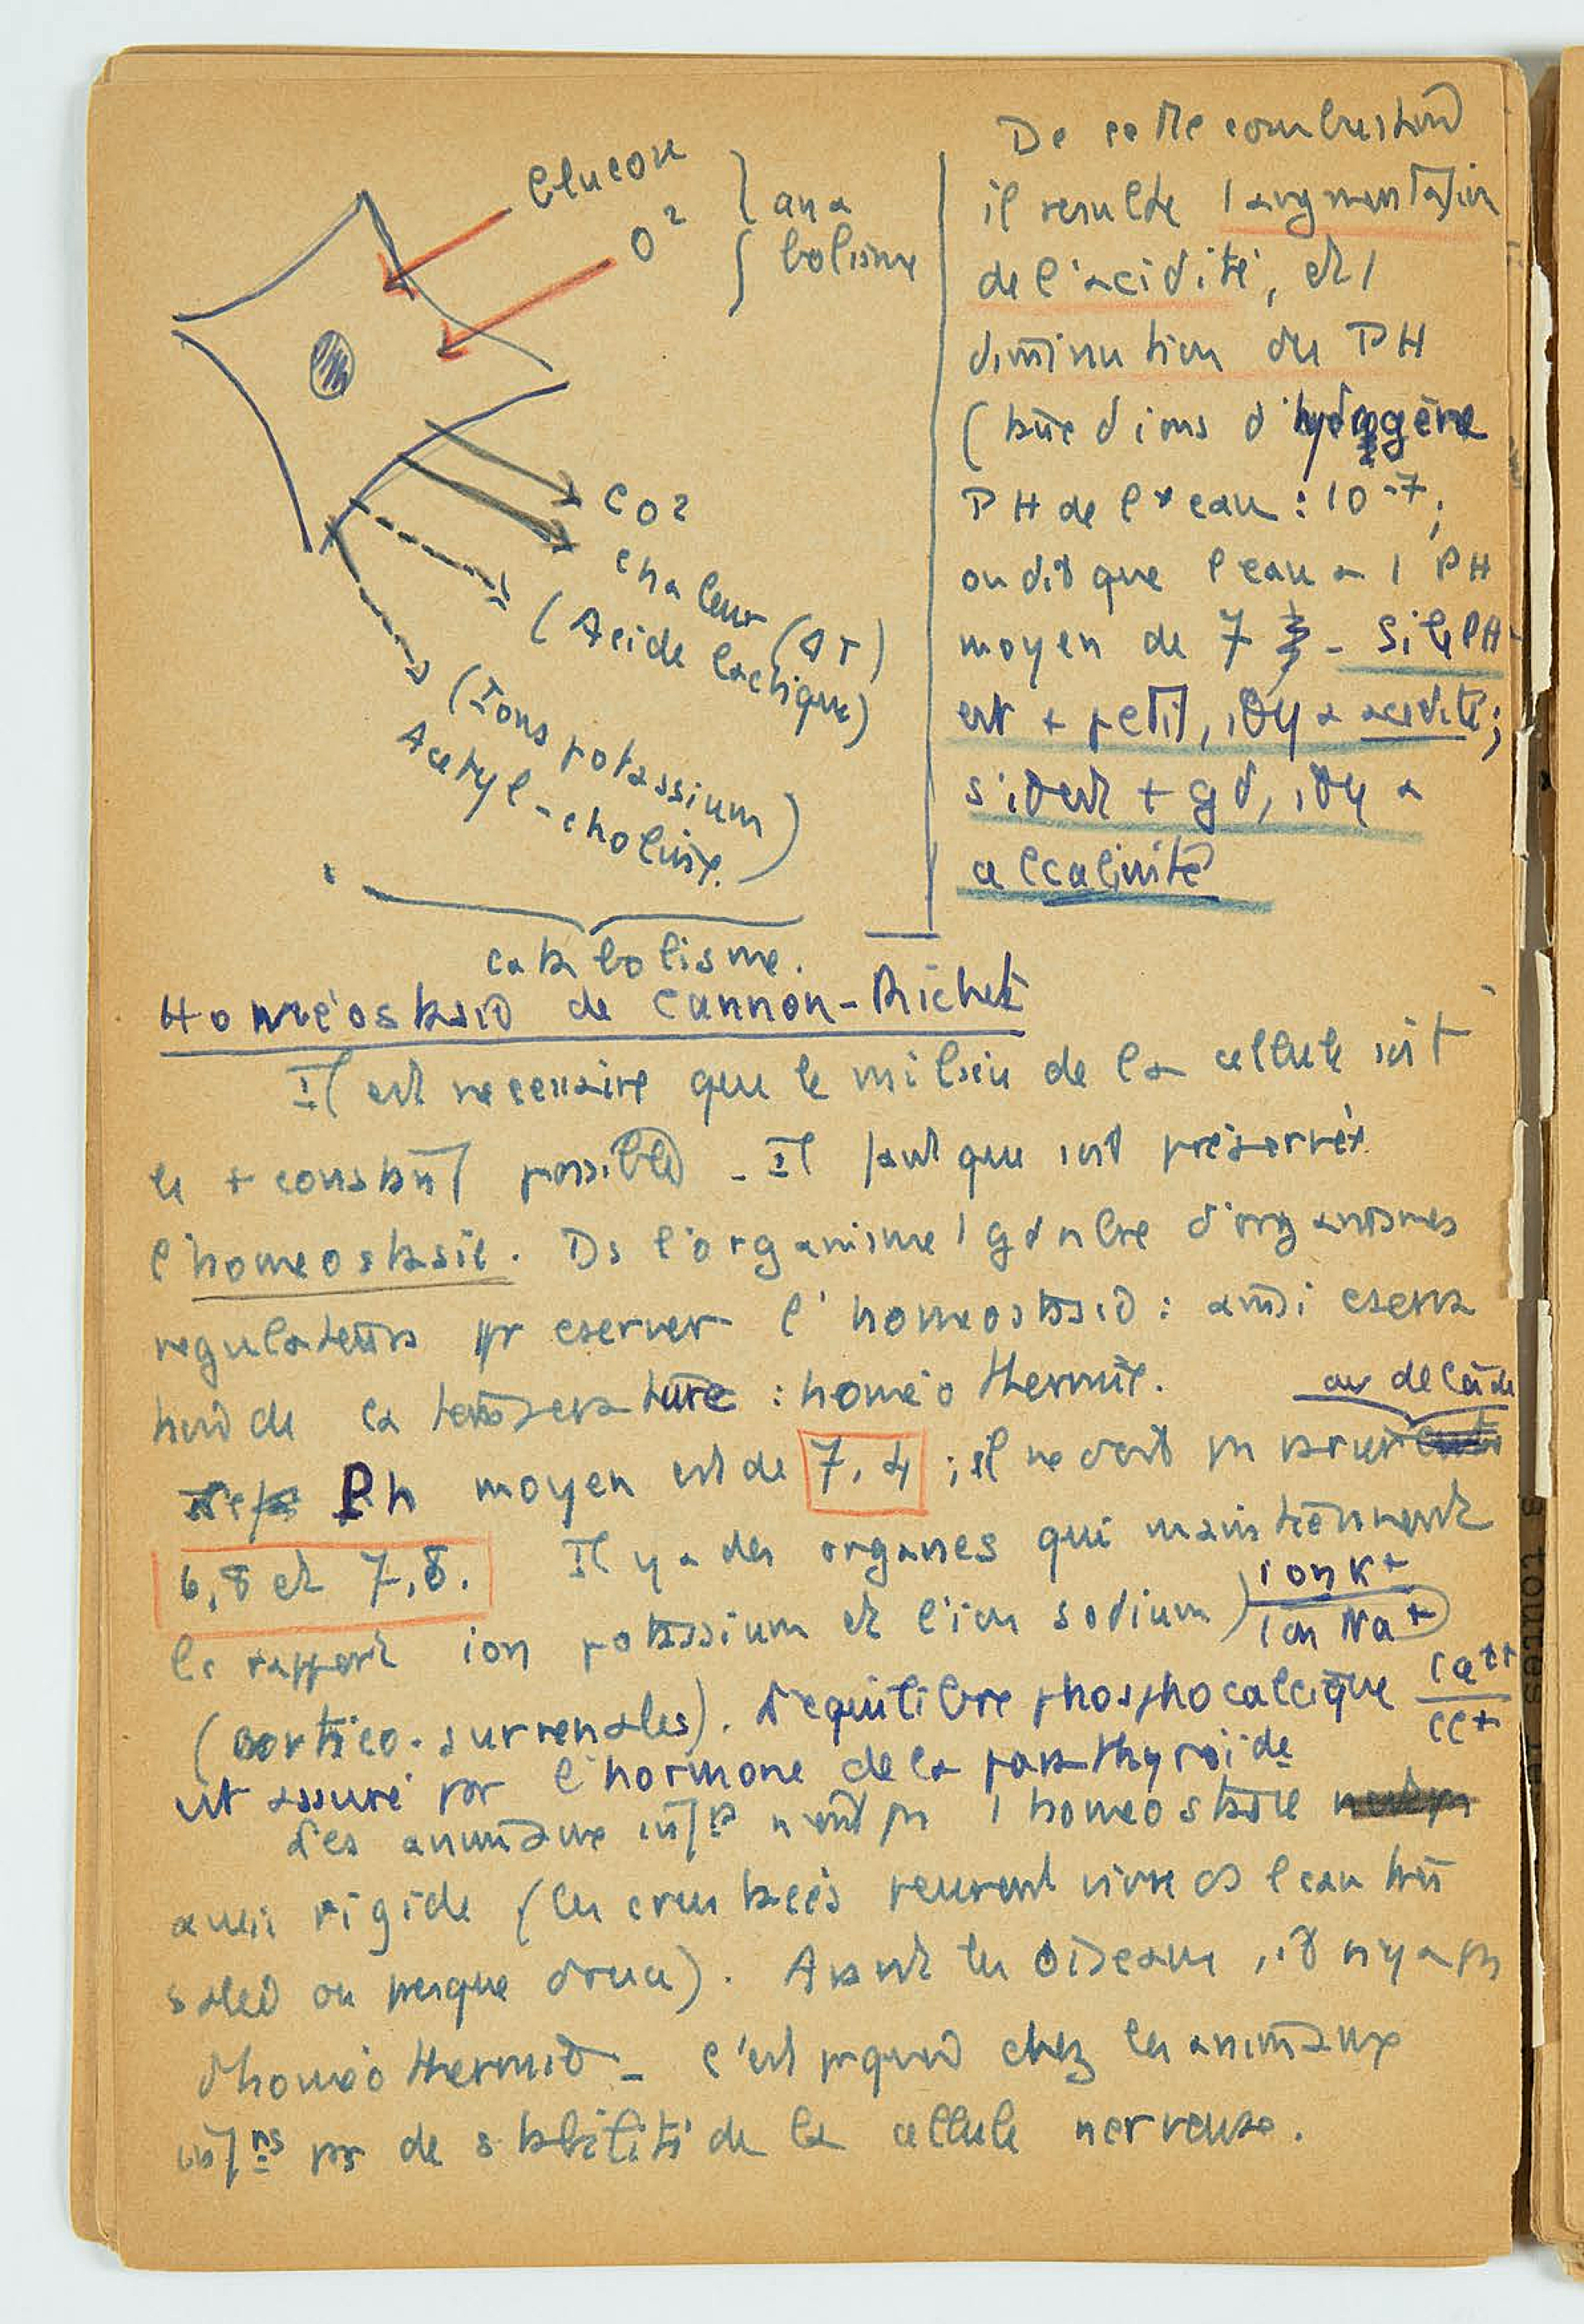 Glucose
O²
ana
bolisme
CO2
chaleur (ΔT)
(Acide lactique)
(Ions potassium
Acetyl-choline.)
catabolisme.
De cette combustion
il resulte 1 augmentation
de l'acidité, et 1
diminution du PH
(taux d'ions d'hydrogène
PH de l'eau : 10-7;
on dit que l'eau a 1 PH
moyen de 7 - Si le PH
est + petit, il y a acidité;
s'il est + gd, il y a
alcalinité
Homéostasie de Cannon-Richet
Il est necessaire que le milieu de la cellule soit
le + constant possible - Il faut que soit préservée
l'homeostasie. Ds l'organisme 1 gd nbre d'organismes
regulateurs pr eserver l'homeostasie : ainsi
de la temperature : homéothermie.
au delà de
Ph moyen est de 7,4 ; il ne doit ps
6,8 et 7,8. Il y a des organes qui maintiennent
le rapport ion potassium et l'ion sodium) ion K+
ion Na+
(cortico-surrenales). L'equilibre phosphocalcique Ca++
Cl+
est assuré par l'hormone de la parathyroide
Les animaux n'ont ps 1 homeostasie
aussi rigide (les crustacés peuvent vivre ds l'eau très
salée ou presque douce). Avant les oiseaux, il n'y a ps
d'homéothermie - c'est pquoi chez les animaux
infrs ps de stabilité de la cellule nerveuse.